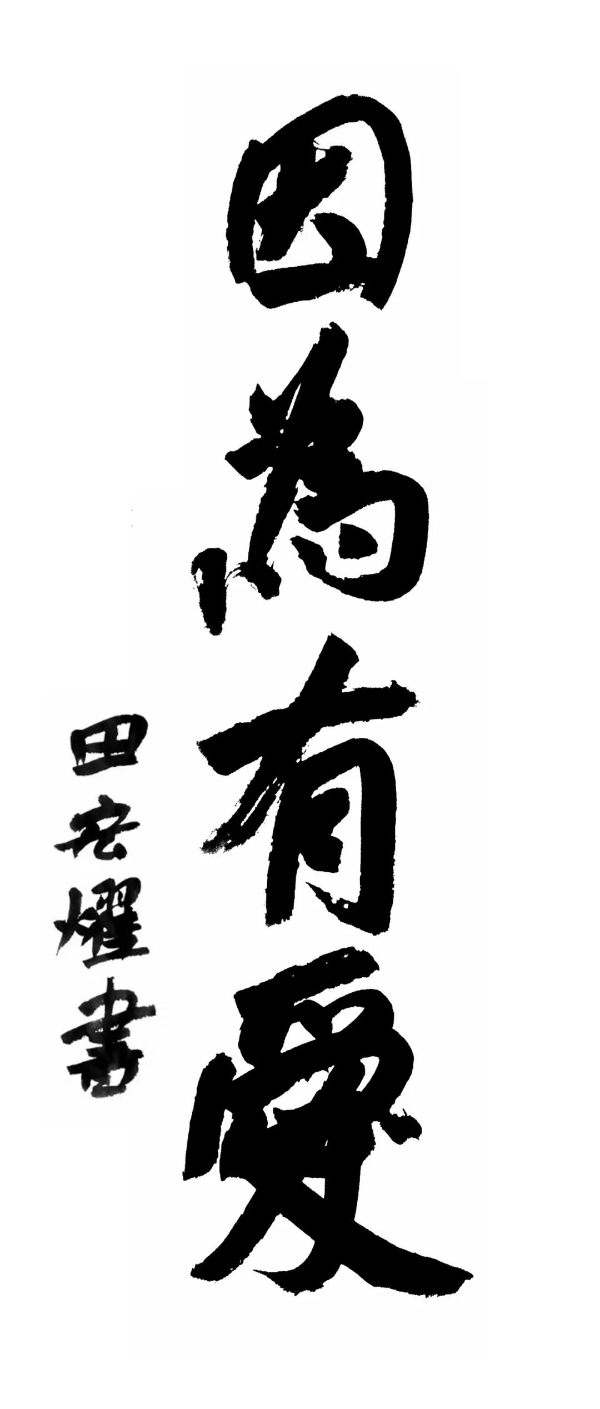 因為有愛
田宏燿書